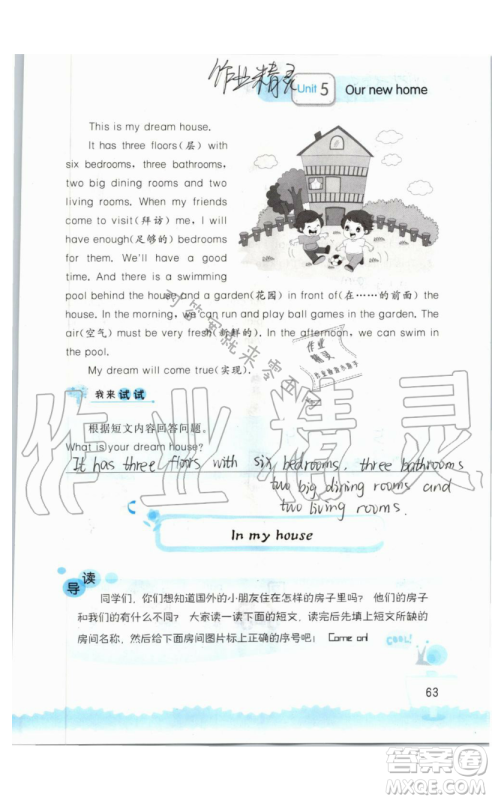 作业精灵
Unit 5 Our new home
This is my dream house.
It has three floors(层) with
six bedrooms, three bathrooms,
two big dining rooms and two
living rooms. When my friends
come to visit(拜访) me, I will
have enough(足够的) bedrooms
for them. And there is a swimming
pool behind the house and a garden(花园) in front of(在……的前面) the
house. In the morning, we can run and play ball games in the garden. The
air(空气) must be very fresh(新鲜的). In the afternoon, we can swim in
the pool.
My dream will come true(实现).
我来试试
根据短文内容回答问题。
What is your dream house?
It has three floors with six bedrooms, three bathrooms
two big dining rooms and
two living rooms.
In my house
导读
同学们，你们想知道国外的小朋友住在怎样的房子里吗？他们的房子
和我们的有什么不同？大家读一读下面的短文，读完后找出短文所缺的
房间名称，然后给下面房间图片标上正确的序号吧！Come on!
COOL!
63
作业精灵
作业
精灵
答案圈
MXQE.COM